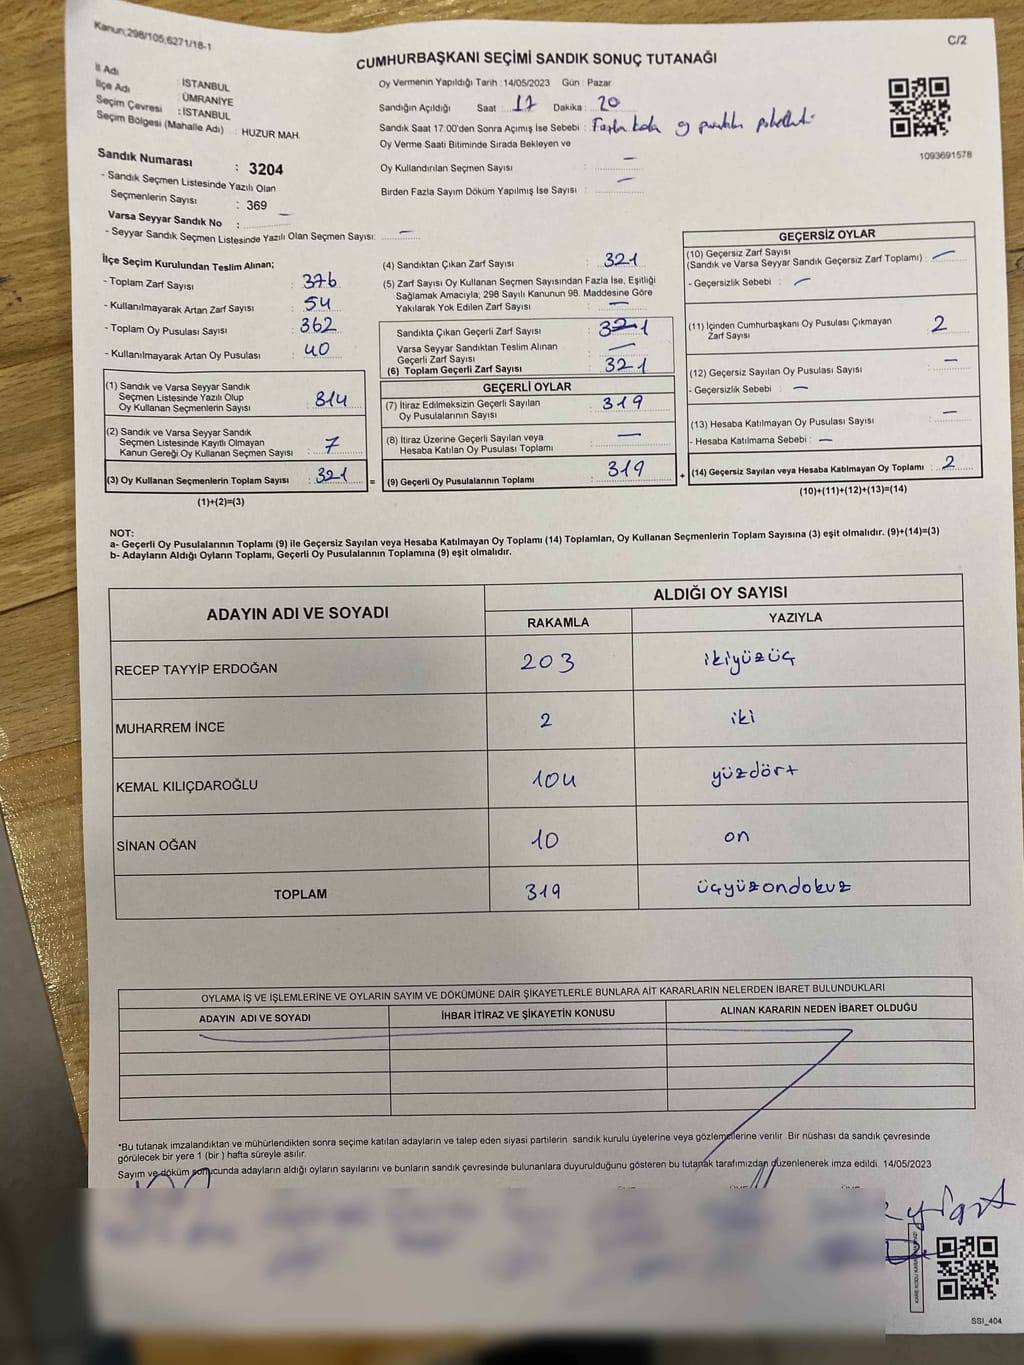 Kanun;298/105;6271/18-1
C/2
CUMHURBAŞKANI SEÇİMİ SANDIK SONUÇ TUTANAĞI
İl Adı : İSTANBUL
İlçe Adı : ÜMRANİYE
Seçim Çevresi : İSTANBUL
Seçim Bölgesi (Mahalle Adı) : HUZUR MAH.
Oy Vermenin Yapıldığı Tarih : 14/05/2023 Gün : Pazar
Sandığın Açıldığı Saat : 17 Dakika : 20
Sandık Saat 17:00'den Sonra Açımış İse Sebebi : Fazla
Oy Verme Saati Bitiminde Sırada Bekleyen ve
Oy Kullandırılan Seçmen Sayısı : —
Birden Fazla Sayım Döküm Yapılmış İse Sayısı : —
1093691578
Sandık Numarası : 3204
- Sandık Seçmen Listesinde Yazılı Olan
Seçmenlerin Sayısı : 369
Varsa Seyyar Sandık No : —
- Seyyar Sandık Seçmen Listesinde Yazılı Olan Seçmen Sayısı: —
İlçe Seçim Kurulundan Teslim Alınan;
- Toplam Zarf Sayısı : 376
- Kullanılmayarak Artan Zarf Sayısı : 54
- Toplam Oy Pusulası Sayısı : 362
- Kullanılmayarak Artan Oy Pusulası : 40
(1) Sandık ve Varsa Seyyar Sandık
Seçmen Listesinde Yazılı Olup
Oy Kullanan Seçmenlerin Sayısı : 314
(2) Sandık ve Varsa Seyyar Sandık
Seçmen Listesinde Kayıtlı Olmayan
Kanun Gereği Oy Kullanan Seçmen Sayısı : 7
(3) Oy Kullanan Seçmenlerin Toplam Sayısı : 321 =
(1)+(2)=(3)
(4) Sandıktan Çıkan Zarf Sayısı : 321
(5) Zarf Sayısı Oy Kullanan Seçmen Sayısından Fazla İse, Eşitliği
Sağlamak Amacıyla; 298 Sayılı Kanunun 98. Maddesine Göre
Yakılarak Yok Edilen Zarf Sayısı : —
Sandıkta Çıkan Geçerli Zarf Sayısı : 321
Varsa Seyyar Sandıktan Teslim Alınan
Geçerli Zarf Sayısı : —
(6) Toplam Geçerli Zarf Sayısı : 321
GEÇERLİ OYLAR
(7) İtiraz Edilmeksizin Geçerli Sayılan
Oy Pusulalarının Sayısı : 319
(8) İtiraz Üzerine Geçerli Sayılan veya
Hesaba Katılan Oy Pusulası Toplamı : —
(9) Geçerli Oy Pusulalarının Toplamı : 319 +
GEÇERSİZ OYLAR
(10) Geçersiz Zarf Sayısı
(Sandık ve Varsa Seyyar Sandık Geçersiz Zarf Toplamı) : —
- Geçersizlik Sebebi : —
(11) İçinden Cumhurbaşkanı Oy Pusulası Çıkmayan
Zarf Sayısı : 2
(12) Geçersiz Sayılan Oy Pusulası Sayısı : —
- Geçersizlik Sebebi : —
(13) Hesaba Katılmayan Oy Pusulası Sayısı : —
- Hesaba Katılmama Sebebi : —
(14) Geçersiz Sayılan veya Hesaba Katılmayan Oy Toplamı : 2
(10)+(11)+(12)+(13)=(14)
NOT:
a- Geçerli Oy Pusulalarının Toplamı (9) ile Geçersiz Sayılan veya Hesaba Katılmayan Oy Toplamı (14) Toplamları, Oy Kullanan Seçmenlerin Toplam Sayısına (3) eşit olmalıdır. (9)+(14)=(3)
b- Adayların Aldığı Oyların Toplamı, Geçerli Oy Pusulalarının Toplamına (9) eşit olmalıdır.
ADAYIN ADI VE SOYADI ALDIĞI OY SAYISI
RAKAMLA YAZIYLA
RECEP TAYYİP ERDOĞAN 203 ikiyüzüç
MUHARREM İNCE 2 iki
KEMAL KILIÇDAROĞLU 104 yüzdört
SİNAN OĞAN 10 on
TOPLAM 319 üçyüzondokuz
OYLAMA İŞ VE İŞLEMLERİNE VE OYLARIN SAYIM VE DÖKÜMÜNE DAİR ŞİKAYETLERLE BUNLARA AİT KARARLARIN NELERDEN İBARET BULUNDUKLARI
ADAYIN ADI VE SOYADI İHBAR İTİRAZ VE ŞİKAYETİN KONUSU ALINAN KARARIN NEDEN İBARET OLDUĞU
*Bu tutanak imzalandıktan ve mühürlendikten sonra seçime katılan adayların ve talep eden siyasi partilerin sandık kurulu üyelerine veya gözlemcilerine verilir .Bir nüshası da sandık çevresinde
görülecek bir yere 1 (bir ) hafta süreyle asılır.
Sayım ve döküm sonucunda adayların aldığı oyların sayılarını ve bunların sandık çevresinde bulunanlara duyurulduğunu gösteren bu tutanak tarafımızdan düzenlenerek imza edildi. 14/05/2023
SSI_404